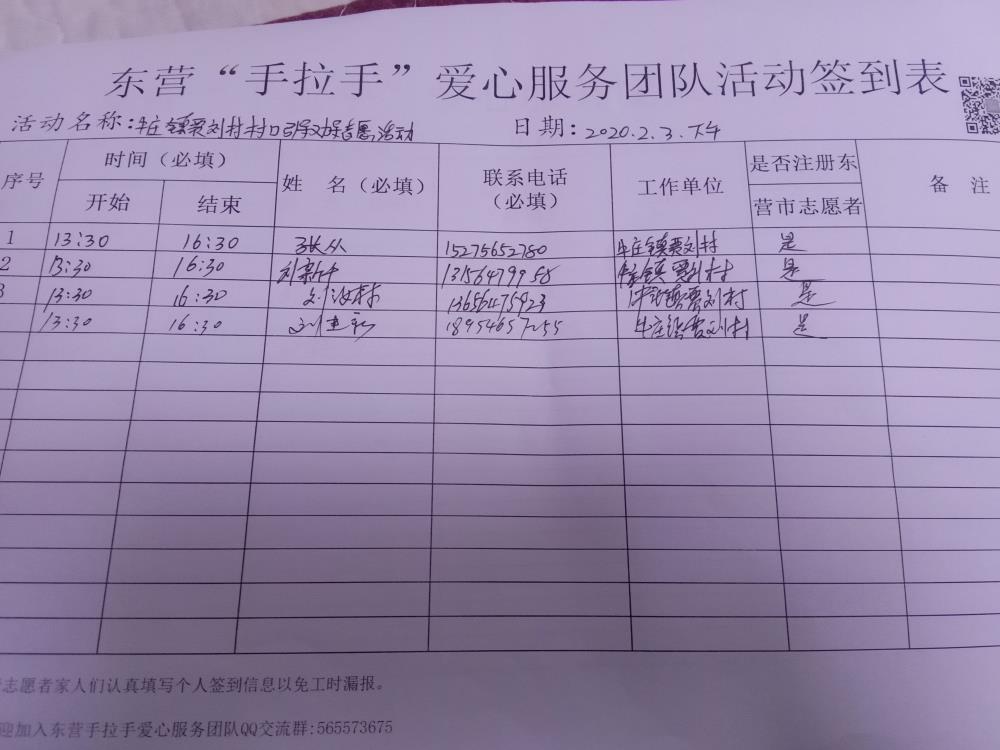 东营“手拉手”爱心服务团队活动签到表
活动名称:牛庄镇贾刘村村口劝导志愿活动 日期:2020.2.3.下午
序号 时间(必填) 姓 名(必填) 联系电话(必填) 工作单位 是否注册东营市志愿者 备 注
开始 结束
1 13:30 16:30 张从 15275652780 牛庄镇贾刘村 是
2 13:30 16:30 13156479958 牛庄镇贾刘村 是
3 13:30 16:30 13656475923 牛庄镇贾刘村 是
13:30 16:30 18954657255 牛庄镇贾刘村 是
志愿者家人们认真填写个人签到信息以免工时漏报。
迎加入东营手拉手爱心服务团队QQ交流群:565573675